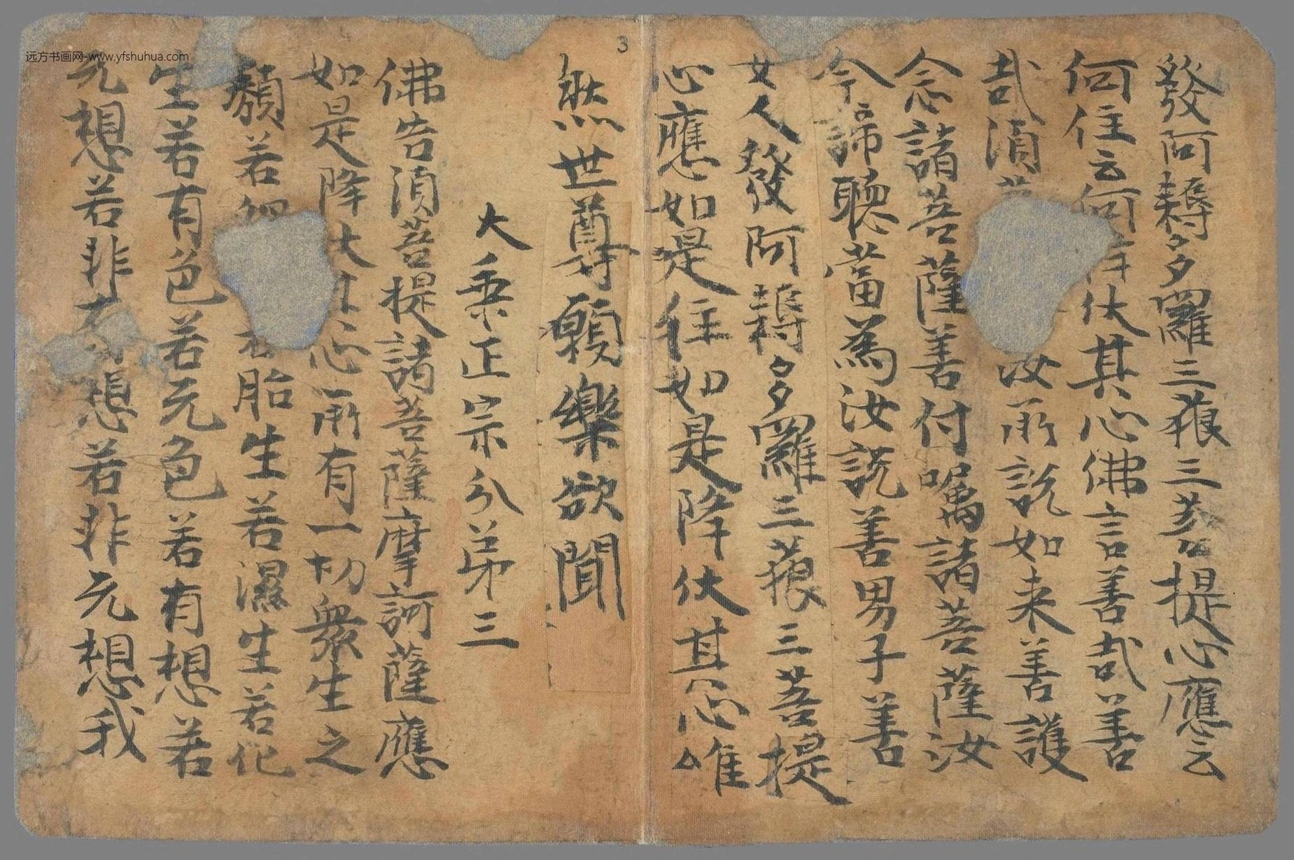 远方书画网-www.yfshuhua.com
3
發阿耨多羅三藐三菩提心應云
何住云何降伏其心佛言善哉善
哉須菩 汝所說如来善護
念諸菩薩善付嘱諸菩薩汝
今諦聽當為汝説善男子善
女人發阿耨多羅三藐三菩提
心應如是住如是降伏其心唯
然世尊願樂欲聞
大乘正宗分弟三
佛告須菩提諸菩薩摩訶薩應
如是降伏其心所有一切衆生之
類若卵 若胎生若濕生若化
生若有色若无色若有想若
无想若非有想若非无想我